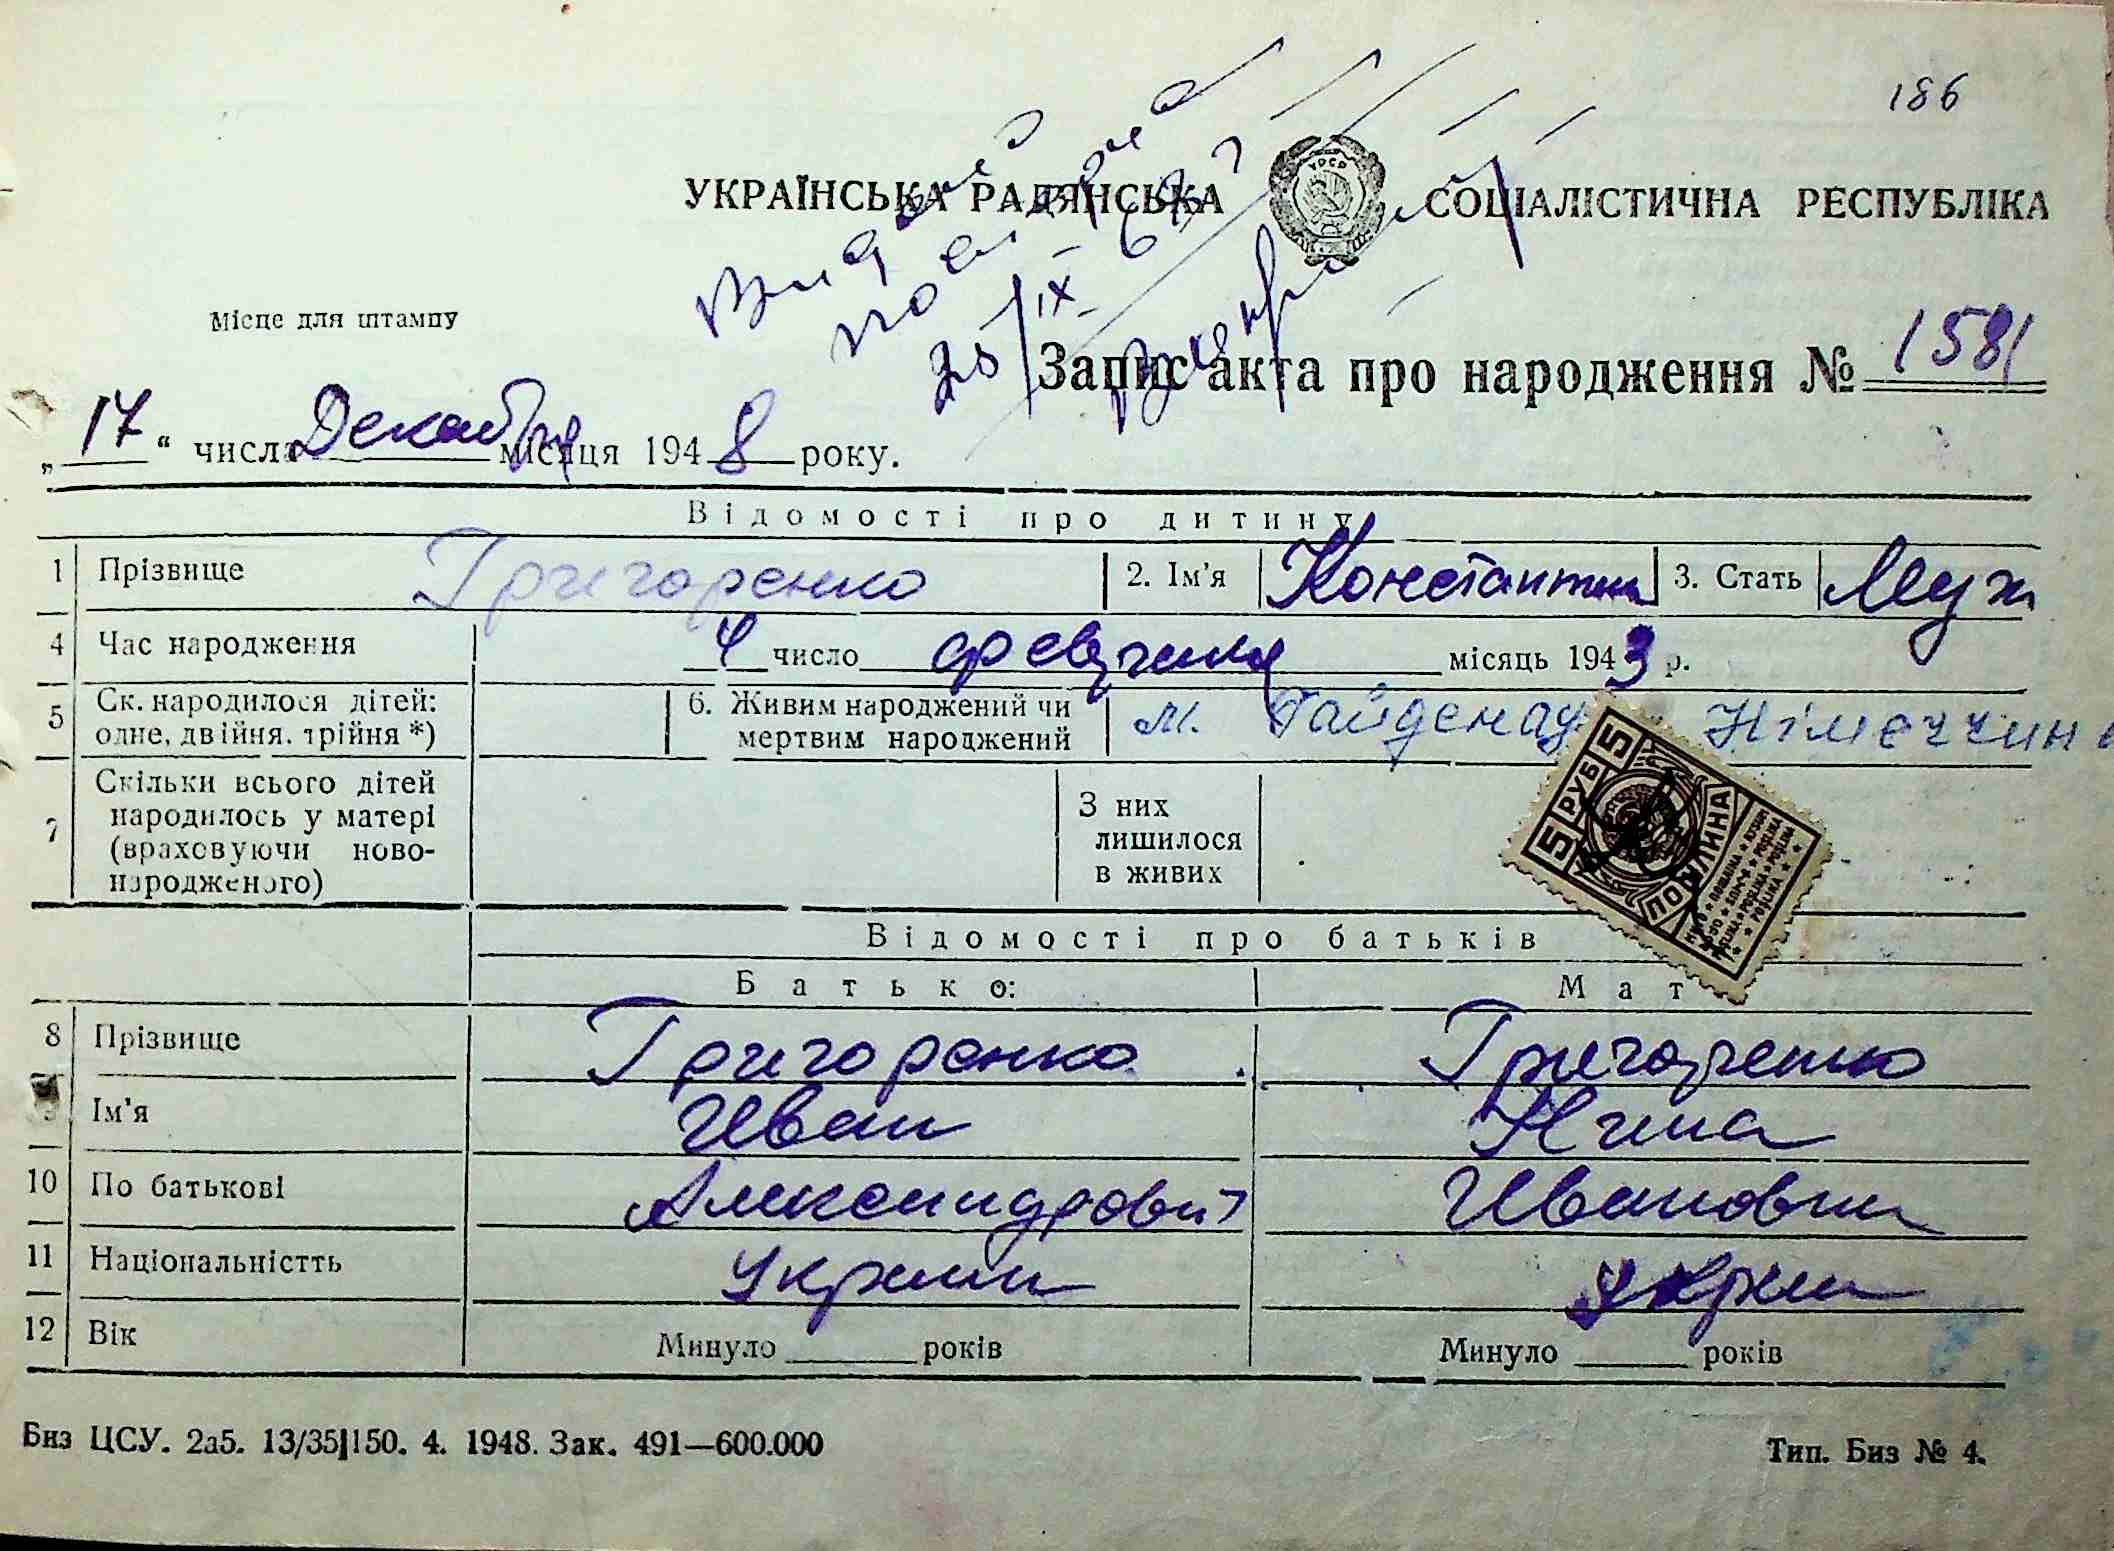 186
УКРАЇНСЬКА РАДЯНСЬКА СОЦІАЛІСТИЧНА РЕСПУБЛІКА
УРСР
Місце для штампу
Запис акта про народження № 1581
„17“ числа Декабря місяця 1948 року.
Відомості про дитину
1 Прізвище Григоренко 2. Ім'я Константин 3. Стать Муж
4 Час народження 4 число февраля місяць 1943 р.
5 Ск. народилося дітей: одне, двійня, трійня *) 6. Живим народжений чи мертвим народжений м. Гайденау Німеччина
7 Скільки всього дітей народилось у матері (враховуючи новонародженого) З них лишилося в живих
5 РУБ 5
ПОШЛИНА
Відомості про батьків
Батько: Мат
8 Прізвище Григоренко Григоренко
Ім'я Иван Нина
10 По батькові Александрович Ивановна
11 Національністть Украин Украин
12 Вік Минуло років Минуло років
Биз ЦСУ. 2а5. 13/35|150. 4. 1948. Зак. 491—600.000 Тип. Биз № 4.